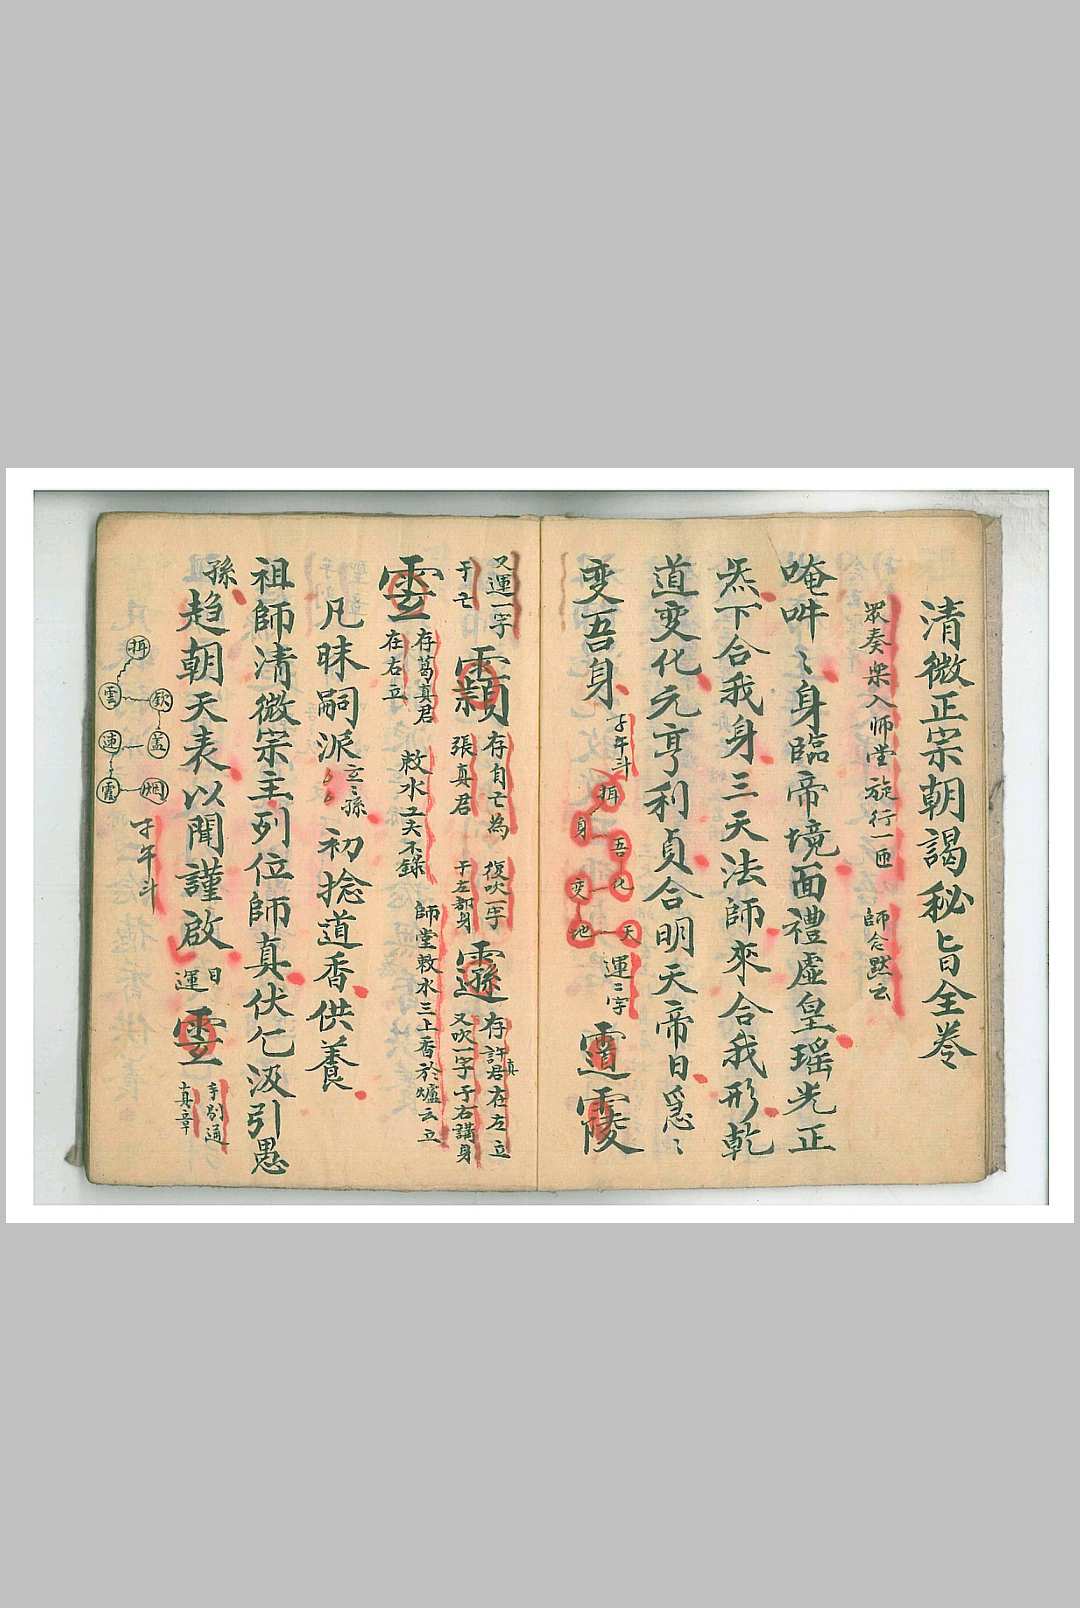 清微正宗朝謁秘旨全卷
眾奏樂入师堂旋行一匝 師念黙云
唵吽〻身臨帝境面禮虛皇瑶光正
炁下合我身三天法師來合我形乾
道变化元亨利貞合明天帝日
变吾身
子午斗
身
吾
变 化
地 天
運二字
又運一字
于亡
存自亡為
張真君
復吹一字
于左部身
存許真君在左立
又吹一字于右講身
存葛真君
在右立
敕水五关不錄
師堂敕水三上香於爐云立
凡昧嗣派 孫 初捻道香供養
祖師清微宗主列位師真伏乞汲引愚
孫趋朝天表以聞謹啟 日
運
手别通
真章
雲
蓋
連
子午斗